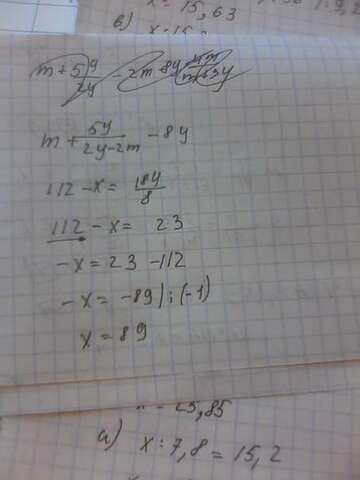 x = 15,63
в)
m + 5y/2y - 2m - 8y
m + 5y/2y-2m - 8y
112 - x = 184/8
112 - x = 23
-x = 23 - 112
-x = -89 | : (-1)
x = 89
25,85
а) x : 7,8 = 15,2